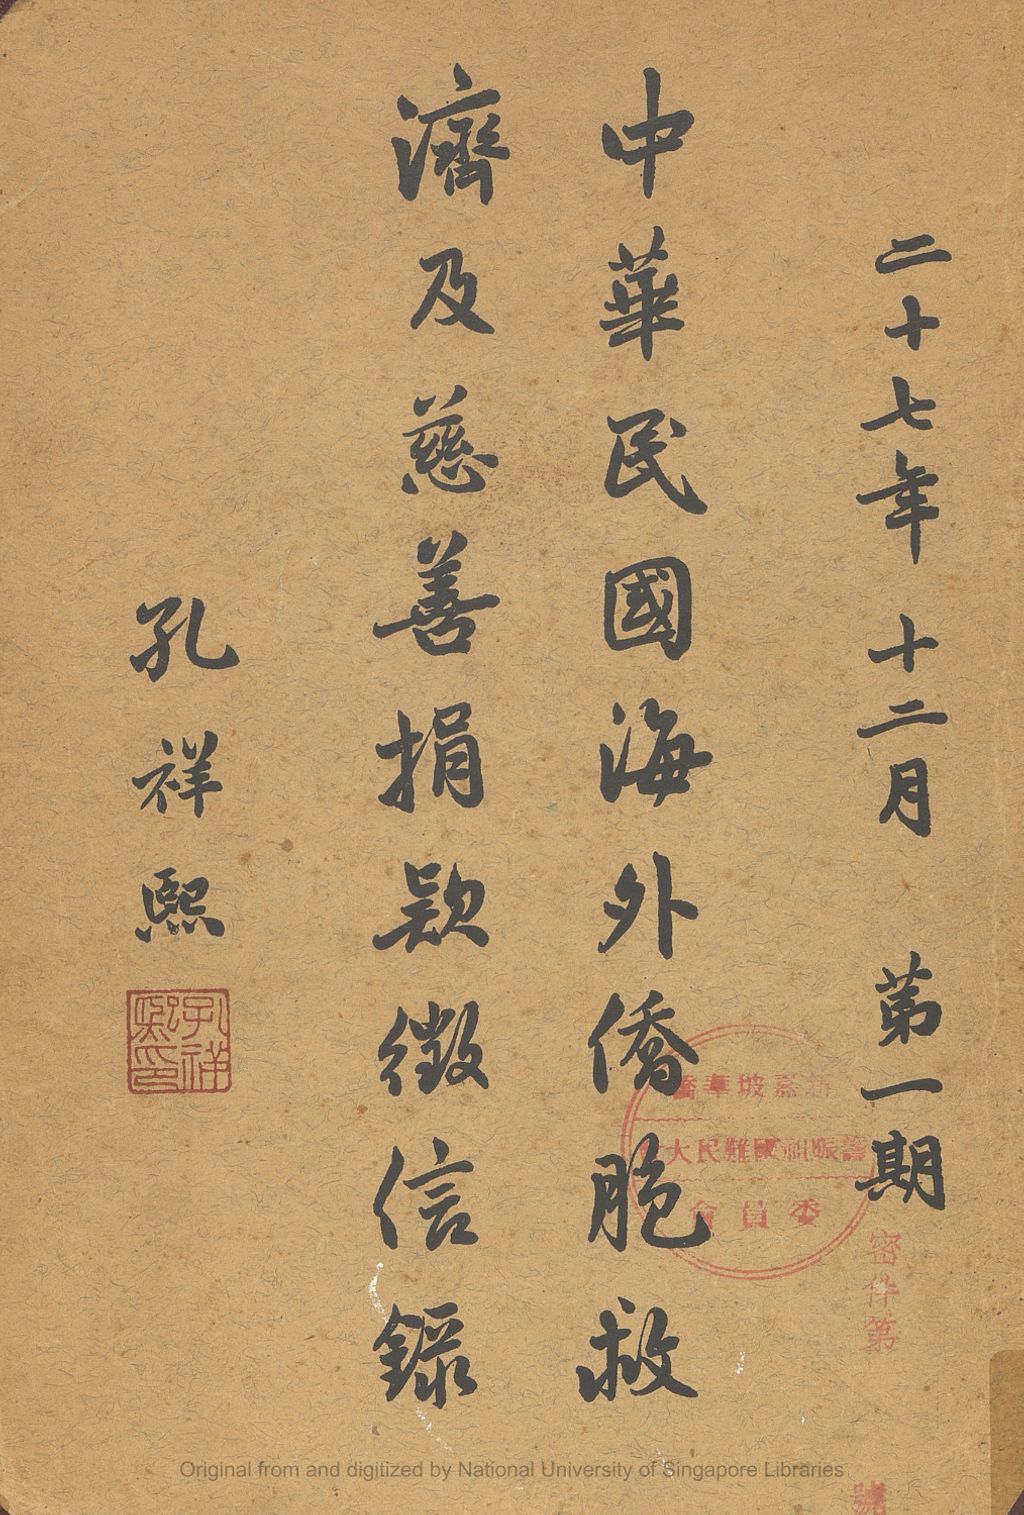 二十七年十二月 第一期
中華民國海外僑胞救
濟及慈善捐款徵信錄
孔祥熙
孔祥熙印
新嘉坡華僑
籌賑祖國難民大
委員會
密件第
號
Original from and digitized by National University of Singapore Libraries